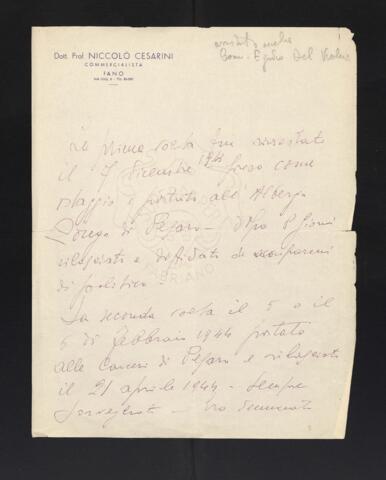 Dott. Prof. NICCOLÒ CESARINI
COMMERCIALISTA
FANO
anche
Comm. Egidio Del
La prima volta fui arrestato
il 7 dicembre 1943 preso come
ostaggio e portato all'Albergo
di Pesaro - dopo 8 giorni
rilasciato e diffidato di occuparmi
di politica.
La seconda volta il 5 o il
6 di febbraio 1944 portato
alle Carceri di Pesaro e rilasciato
il 21 aprile 1944 - Sempre
sorvegliato - denunciato
FABRIANO